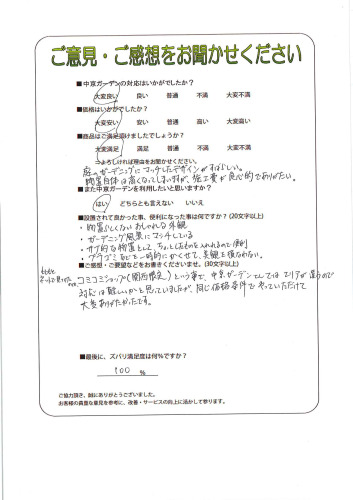 ご意見・ご感想をお聞かせください
■中京ガーデンの対応はいかがでしたか?
大変良い 良い 普通 不満 大変不満
■価格はいかがでしたか?
大変安い 安い 普通 高い 大変高い
■商品はご満足頂けましたでしょうか?
大変満足 満足 普通 不満 大変不満
⇒よろしければ理由をお聞かせください。
庭のガーデニングにマッチしたデザインがすばらしい。
物置自体は高くなってしまいますが、施工費が良心的でありがたい。
■また中京ガーデンを利用したいと思いますか?
はい どちらとも言えない いいえ
■設置されて良かった事、便利になった事は何ですか?(20文字以上)
・物置らしくないおしゃれな外観
・ガーデニング風景にマッチしている
・サブ的な物置として、ちょっとしたものを入れれるので便利
・プラゴミなどを一時的にかくせて、美観を損なわない。
■ご感想・ご要望などをお書きくださいませ。(30文字以上)
もともと
ネットで見つけた
コミコミショップ(関西限定)という事で、中京ガーデンさんではエリアが違うので
対応は難しいかと思っていましたが、同じ価格条件でやっていただけて
大変ありがたかったです。
■最後に、ズバリ満足度は何%ですか?
100 %
ご協力頂き、誠にありがとうございました。
お客様の貴重な意見を参考に、改善・サービスの向上に活かして参ります。